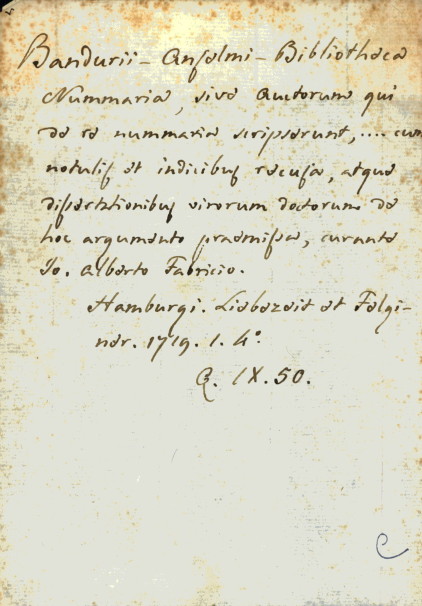 Bandurii - Anselmi - Bibliotheca
Nummaria, sive Auctorum qui
de re nummaria scripserunt, .... cum
notulis et indicibus recusa, atque
dissertationibus virorum doctorum de
hoc argumento praemissa, curante
Jo. Alberto Fabricio.
Hamburgi. Liebezeit et Felgi-
ner. 1719. 1. 4º.
Q. IX. 50.
C